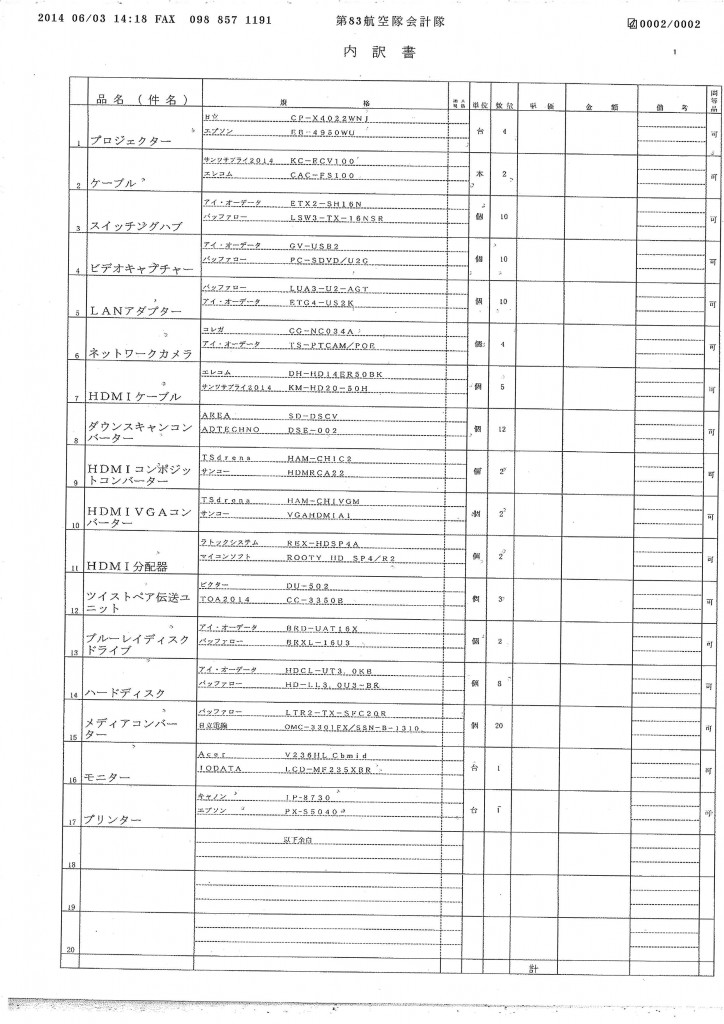 2014 06/03 14:18 FAX 098 857 1191 第83航空隊会計隊 0002/0002
内訳書 1
品名(件名) 規格 単位 数量 単価 金額 備考 同等品
日立 CP-X4022WNJ
エプソン EB-4950WU
1 プロジェクター 台 4 可
サンワサプライ2014 KC-ECV100
エレコム CAC-FS100
2 ケーブル 本 2 可
アイ・オーデータ ETX2-SH16N
バッファロー LSW3-TX-16NSR
3 スイッチングハブ 個 10 可
アイ・オーデータ GV-USB2
バッファロー PC-SDVD/U2G
4 ビデオキャプチャー 個 10 可
バッファロー LUA3-U2-AGT
アイ・オーデータ ETG4-US2K
5 LANアダプター 個 10 可
コレガ CG-NC034A
アイ・オーデータ TS-PTCAM/POE
6 ネットワークカメラ 個 4 可
エレコム DH-HD14ER50BK
サンワサプライ2014 KM-HD20-50H
7 HDMIケーブル 個 5 可
AREA SD-DSCV
ADTECHNO DSE-002
8 ダウンスキャンコンバーター 個 12 可
TSdrena HAM-CHIC2
サンコー HDMRCA22
9 HDMIコンポジットコンバーター 個 2 可
TSdrena HAM-CHIVGM
サンコー VGAHDMIA1
10 HDMIVGAコンバーター 個 2 可
ラトックシステム REX-HDSP4A
マイコンソフト ROOTY HD SP4/R2
11 HDMI分配器 個 2 可
ビクター DU-502
TOA2014 CC-3350B
12 ツイストペア伝送ユニット 個 3 可
アイ・オーデータ BRD-UAT16X
バッファロー BRXL-16U3
13 ブルーレイディスクドライブ 個 2 可
アイ・オーデータ HDCL-UT3.0KB
バッファロー HD-LL3.0U3-BR
14 ハードディスク 個 8 可
バッファロー LTR2-TX-SFC20R
日立電線 OMC-3301FX/SSN-B-1310
15 メディアコンバーター 個 20 可
Acer V236HL Cbmid
IODATA LCD-MF235XBR
16 モニター 台 1 可
キャノン IP-8730
エプソン PX-S5040
17 プリンター 台 1 可
以下余白
18
19
20
計